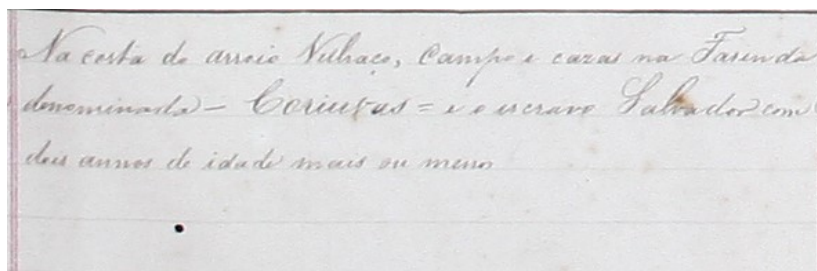 Na costa do arroio Velhaco, Campo e cazas na Fazenda
denominada – = e o escravo Salvador com
dois annos de idade mais ou menos